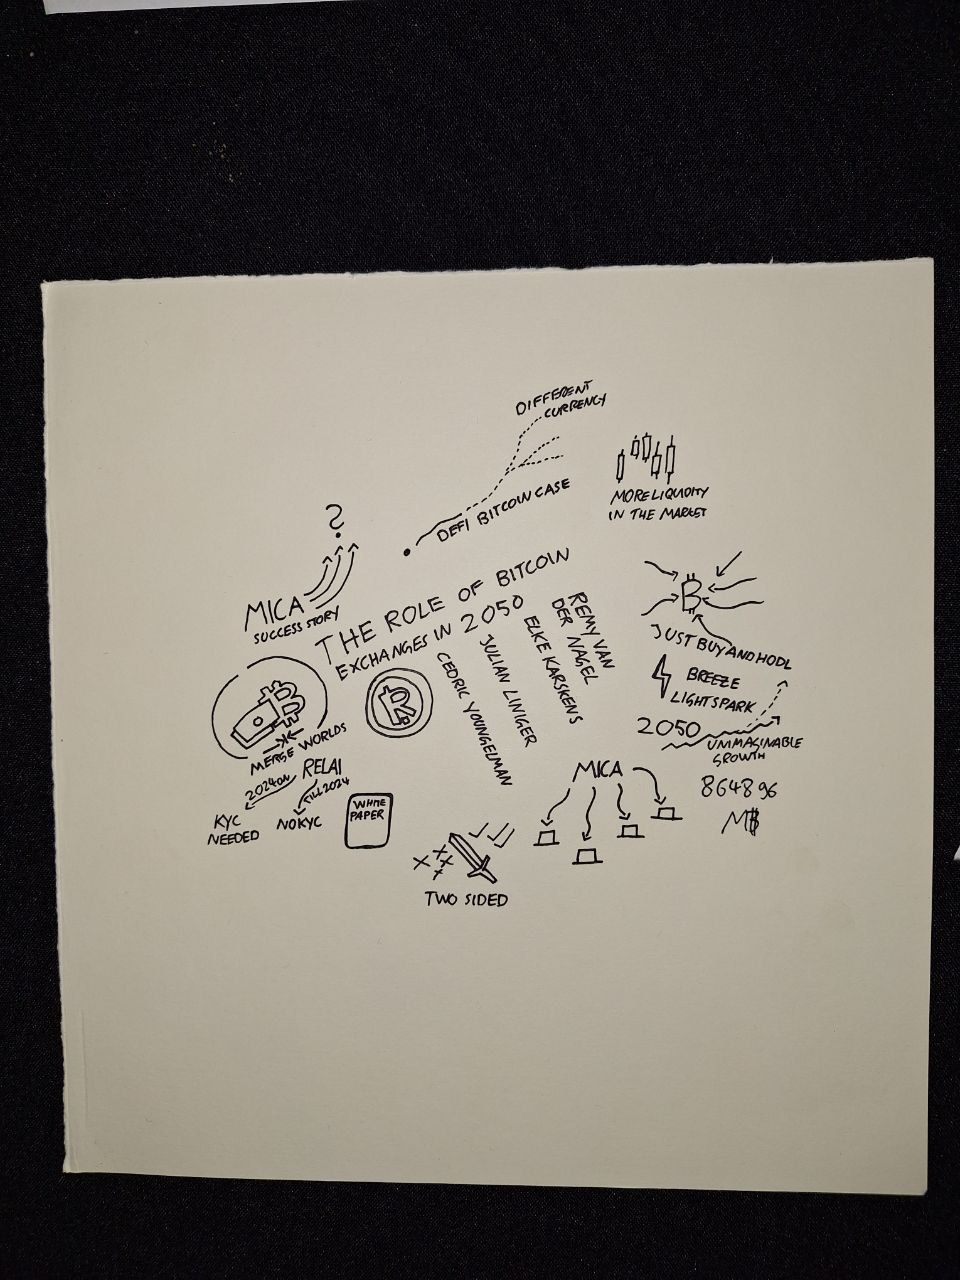 DIFFERENT
CURRENCY
DEFI BITCOIN CASE
MORE LIQUIDITY
IN THE MARKET
?
MICA
SUCCESS STORY
THE ROLE OF BITCOIN
EXCHANGES IN 2050
CEDRIC YOUNGELMAN
JULIAN LINIGER
ELKE KARSKENS
REMY VAN
DER NAGEL
JUST BUY AND HODL
BREEZE
LIGHTSPARK
2050
UNIMAGINABLE
GROWTH
864896
MERGE WORLDS
R
RELAI
2024 ON
TILL 2024
KYC
NEEDED
NO KYC
WHITE
PAPER
TWO SIDED
MICA